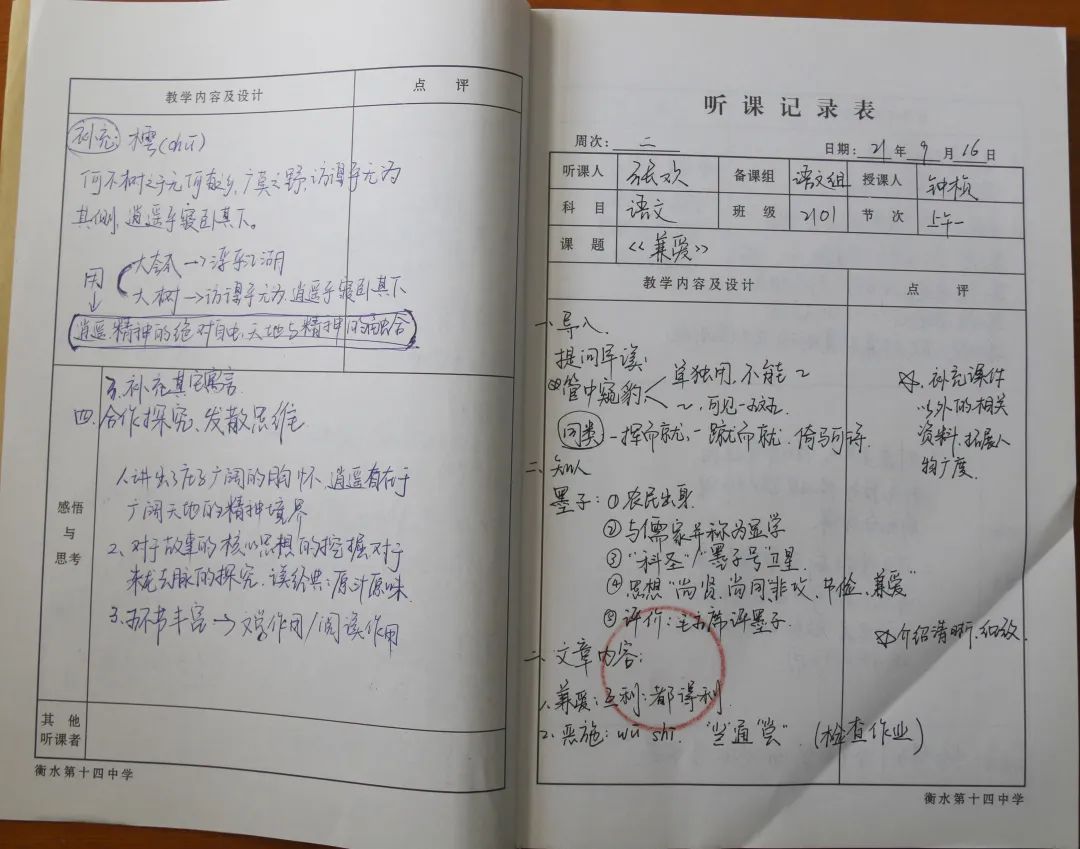 教学内容及设计 点 评
补充: 樗(chū)
何不树之于无何有之乡,广莫之野,彷徨乎无为
其侧,逍遥乎寝卧其下。
用
大瓠→浮乎江湖
大树→彷徨乎无为,逍遥乎寝卧其下
逍遥:精神的绝对自由,天地与精神的融合
3.补充其它寓言
四.合作探究、发散思维
感悟
与
思考
1.讲出了庄子广阔的胸怀,逍遥有在于
广阔天地的精神境界
2、对于故事的核心思想的挖掘,对于
来龙去脉的探究,读经典:原汁原味
3.环节丰富→文学作用/阅读作用
其 他
听课者
衡水第十四中学
听 课 记 录 表
周次: 二 日期: 21 年 9 月 16 日
听课人 张欢 备课组 语文组 授课人 钟桢
科 目 语文 班 级 2101 节 次 上午一
课 题 《兼爱》
教学内容及设计 点 评
一、导入.
提问早读:
管中窥豹 单独用,不能~
~,可见一斑.
同类 一挥而就,一蹴而就,倚马可待.
☆.补充课件
以外的相关
资料,拓展人
物广度.
二、知人
墨子:①农民出身
②与儒家并称为显学
③"科圣"/"墨子号"卫星.
④思想"尚贤,尚同,非攻,节俭,兼爱"
⑤评价:毛主席评墨子.
☆介绍清晰,细致.
三、文章内容:
1.兼爱:互利:都得利.
2.恶施:wū shī. "当"通"尝". (检查作业)
衡水第十四中学